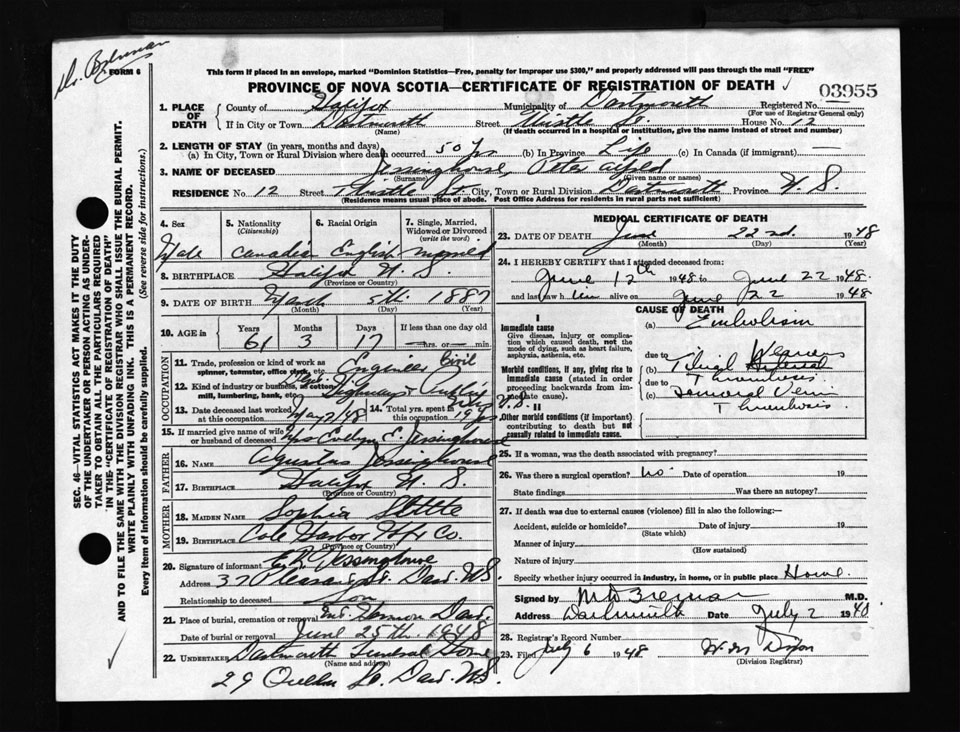 Dr. Brennan
FORM 6
This form if placed in an envelope, marked "Dominion Statistics—Free, penalty for improper use $300," and properly addressed will pass through the mail "FREE"
PROVINCE OF NOVA SCOTIA—CERTIFICATE OF REGISTRATION OF DEATH
03955
1. PLACE OF DEATH
County of Halifax Municipality of Dartmouth Registered No.
(For use of Registrar General only)
If in City or Town Dartmouth Street Thistle St. House No. 12
(Name) (If death occurred in a hospital or institution, give the name instead of street and number)
2. LENGTH OF STAY (in years, months and days)
(a) In City, Town or Rural Division where death occurred 50 Yrs (b) In Province Life (c) In Canada (if immigrant) —
3. NAME OF DECEASED Jessinghouse, Peter Alfred
(Surname) (Given name or names)
RESIDENCE No. 12 Street Thistle St. City, Town or Rural Division Dartmouth Province N.S.
(Residence means usual place of abode. Post Office Address for residents in rural parts not sufficient)
4. Sex
5. Nationality (Citizenship)
6. Racial Origin
7. Single, Married, Widowed or Divorced (write the word)
Male Canadian English married
8. BIRTHPLACE Halifax N. S.
(Province or Country)
9. DATE OF BIRTH March 5th. 1887
(Month) (Day) (Year)
10. AGE in Years Months Days If less than one day old
61 3 17 — hrs. or — min.
OCCUPATION
11. Trade, profession or kind of work as spinner, teamster, office clerk, etc. Engineer Civil
12. Kind of industry or business, as cotton mill, lumbering, bank, etc. Dept. Highways & Public
13. Date deceased last worked at this occupation May 7/48
14. Total yrs. spent in this occupation 19 yrs
15. If married give name of wife or husband of deceased Mrs Evelyn E. Jessinghouse
FATHER
16. NAME Agustus Jessinghouse
17. BIRTHPLACE Halifax N. S.
(Province or Country)
MOTHER
18. MAIDEN NAME Sophia
19. BIRTHPLACE Cole Harbor Hfx Co.
(Province or Country)
20. Signature of informant E.P. Jessinghouse
Address 37 Pleasant St. Dart. N.S.
Relationship to deceased Son
21. Place of burial, cremation or removal Mt. Hermon Dart.
Date of burial or removal June 25th. 1948
22. UNDERTAKER Dartmouth Funeral Home
(Name and address)
29 Queen St. Dart. N.S.
MEDICAL CERTIFICATE OF DEATH
23. DATE OF DEATH June 22nd. 1948
(Month) (Day) (Year)
24. I HEREBY CERTIFY that I attended deceased from:
June 12th 1948 to June 22 1948.
and last saw him alive on June 22 1948
CAUSE OF DEATH
I
Immediate cause
Give disease, injury or complication which caused death, not the mode of dying, such as heart failure, asphyxia, asthenia, etc.
(a) Embolism
due to
Morbid conditions, if any, giving rise to immediate cause (stated in order proceeding backwards from immediate cause).
(b) Thrombosis
due to
(c) Femoral Vein
Thrombosis
II
Other morbid conditions (if important) contributing to death but not causally related to immediate cause.
25. If a woman, was the death associated with pregnancy?
26. Was there a surgical operation? no. Date of operation 19
State findings Was there an autopsy?
27. If death was due to external causes (violence) fill in also the following:—
Accident, suicide or homicide? Date of injury 19
(State which)
Manner of injury
(How sustained)
Nature of injury
Specify whether injury occurred in industry, in home, or in public place Home.
Signed by M.D.
Address Dartmouth Date July 2 1948
28. Registrar's Record Number
29. Filed July 6 1948 W. M. Dixon
(Division Registrar)
SEC. 46—VITAL STATISTICS ACT MAKES IT THE DUTY
OF THE UNDERTAKER OR PERSON ACTING AS UNDER-
TAKER TO OBTAIN ALL THE PARTICULARS REQUIRED
IN THE "CERTIFICATE OF REGISTRATION OF DEATH"
AND TO FILE THE SAME WITH THE DIVISION REGISTRAR WHO SHALL ISSUE THE BURIAL PERMIT.
WRITE PLAINLY WITH UNFADING INK. THIS IS A PERMANENT RECORD.
Every item of information should be carefully supplied. (See reverse side for instructions.)